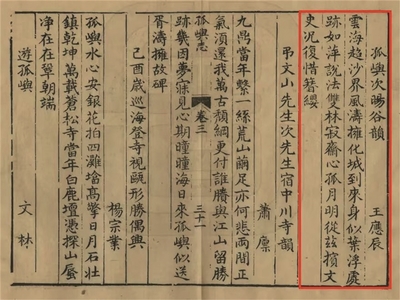 孤嶼次暘谷韻 王應辰
雲海超沙界風濤擁化城到來身似葉浮處
跡如萍說法雙林寂齋心孤月明從玆擯文
吏況復惜簪纓
弔文山先生次先生宿中川寺韻 蕭廩
九鼎當年繫一絲荒山繭足亦何悲兩間正
氣湏還我萬古頹綱更付誰勝與江山留勝
孤嶼志 卷三 三十一
跡幾因夢寐見心期曈曈海日來孤嶼似送
胥濤擁故碑
己酉歲巡海登寺視甌形勝偶興 楊宗業
孤嶼水心安銀花拍四灘塔高擎日月石壯
鎮乾坤萬載蒼松寺當年白鹿壇憑探山蜃
淨在在翠朝端
遊孤嶼 文林